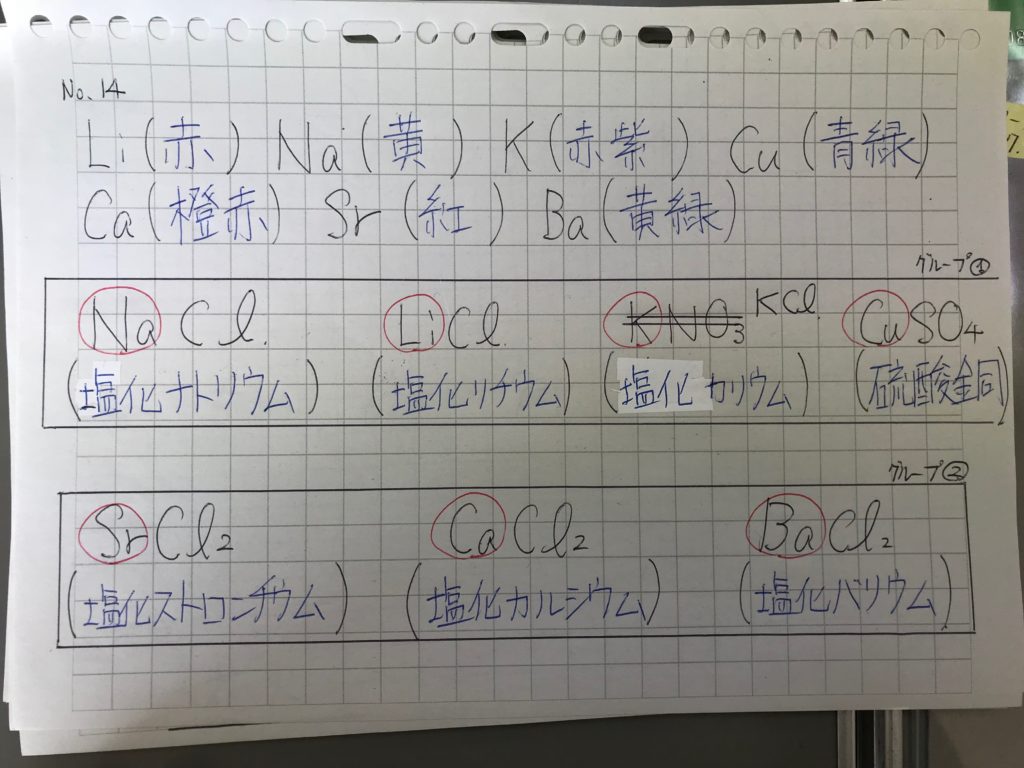 No.14
Li(赤) Na(黄) K(赤紫) Cu(青緑)
Ca(橙赤) Sr(紅) Ba(黄緑)
グループ①
NaCl. LiCl. KNO3 KCl. CuSO4
(塩化ナトリウム) (塩化リチウム) (塩化カリウム) (硫酸銅)
グループ②
SrCl2 CaCl2 BaCl2
(塩化ストロンチウム) (塩化カルシウム) (塩化バリウム)